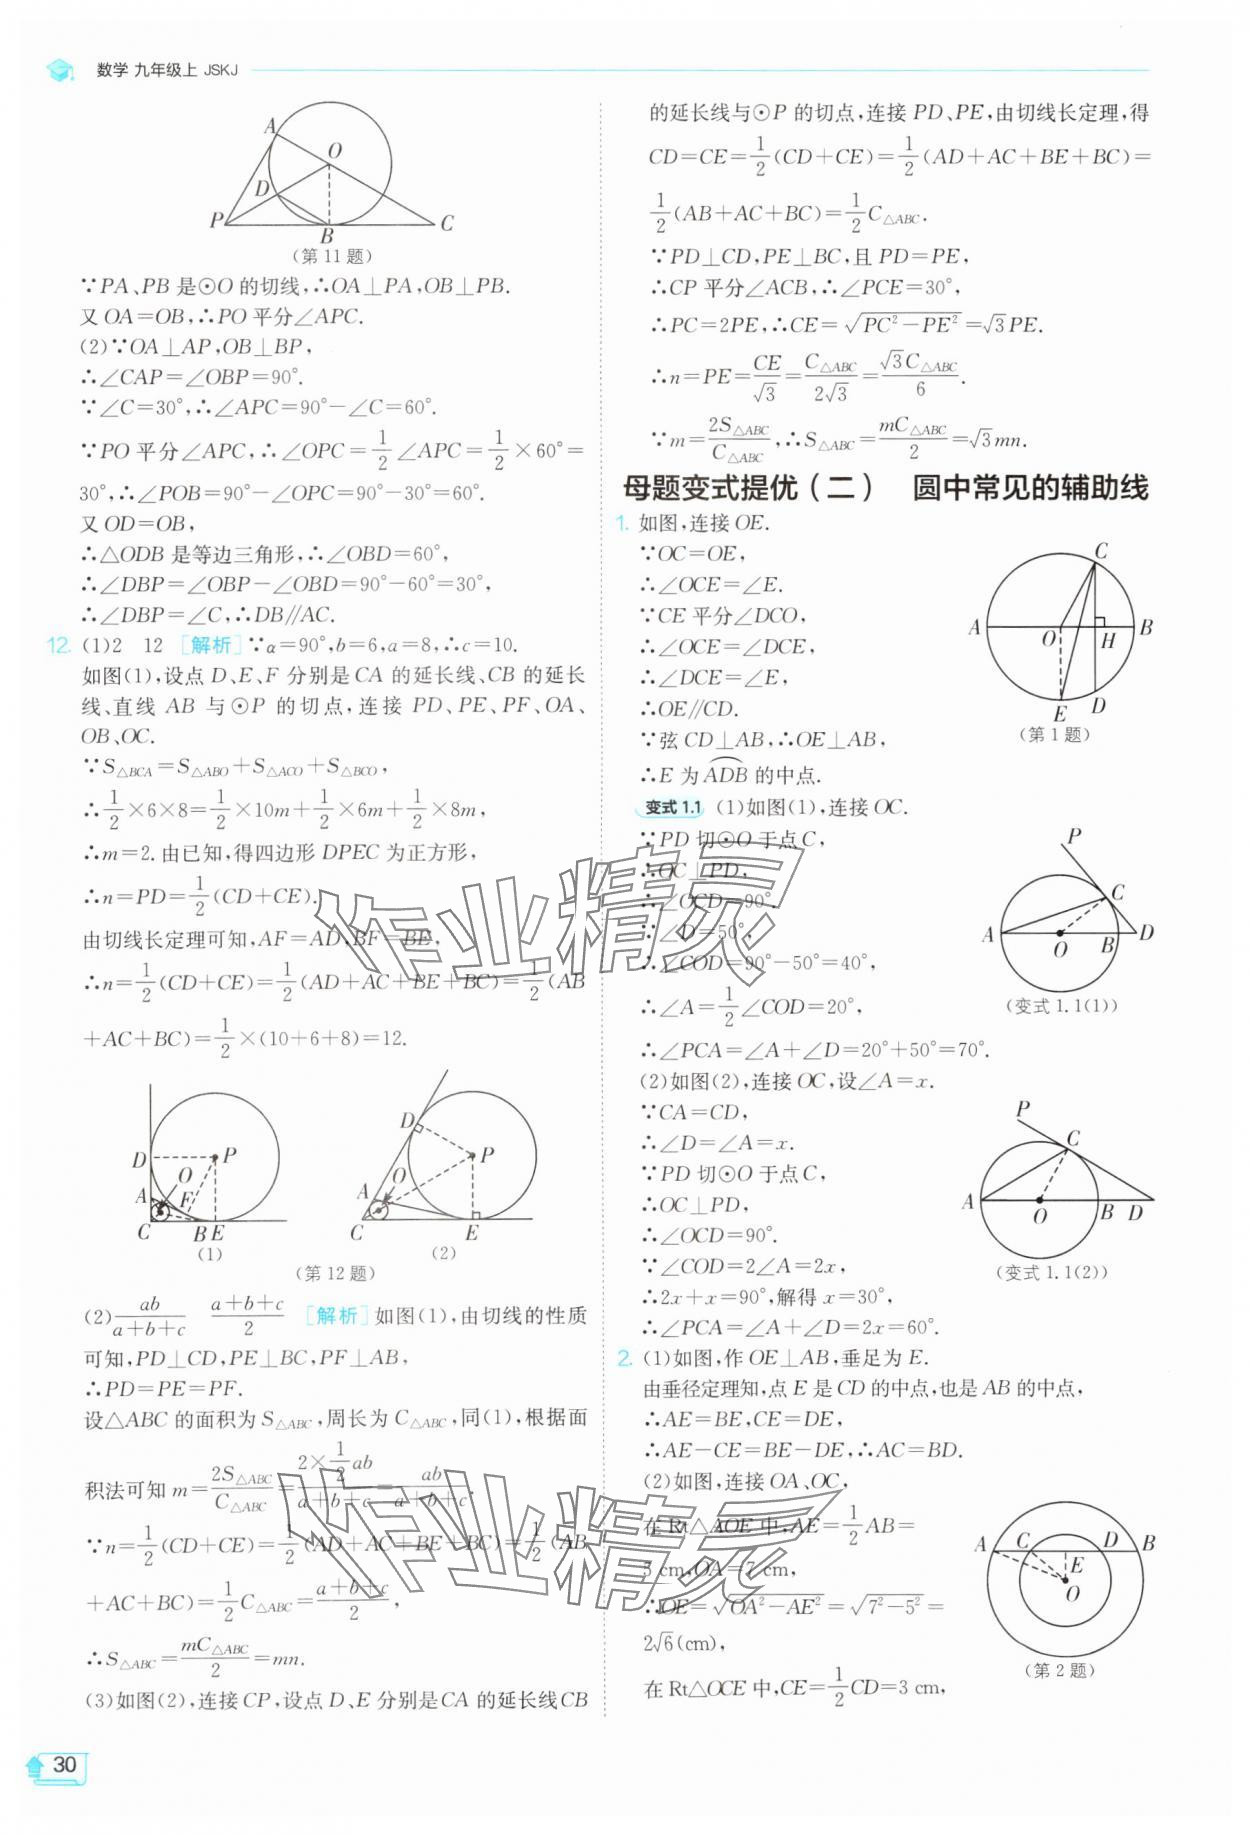 数学 九年级上 JSKJ
A
O
D
P
B
C
(第11题)
∵PA、PB是⊙O的切线,∴OA⊥PA,OB⊥PB.
又OA=OB,∴PO平分∠APC.
(2)∵OA⊥AP,OB⊥BP,
∴∠CAP=∠OBP=90°.
∵∠C=30°,∴∠APC=90°-∠C=60°.
∵PO平分∠APC,∴∠OPC=1/2∠APC=1/2×60°=
30°,∴∠POB=90°-∠OPC=90°-30°=60°.
又OD=OB,
∴△ODB是等边三角形,∴∠OBD=60°,
∴∠DBP=∠OBP-∠OBD=90°-60°=30°,
∴∠DBP=∠C,∴DB∥AC.
12. (1)2 12 [解析]∵α=90°,b=6,a=8,∴c=10.
如图(1),设点D、E、F分别是CA的延长线、CB的延长
线、直线AB与⊙P的切点,连接PD、PE、PF、OA、
OB、OC.
∵S△BCA=S△ABO+S△ACO+S△BCO,
∴1/2×6×8=1/2×10m+1/2×6m+1/2×8m,
∴m=2.由已知,得四边形DPEC为正方形,
∴n=PD=1/2(CD+CE).
由切线长定理可知,AF=AD,BF=BE,
∴n=1/2(CD+CE)=1/2(AD+AC+BE+BC)=1/2(AB
+AC+BC)=1/2×(10+6+8)=12.
D
P
O
A
F
C
B E
(1)
D
P
A
O
C
E
(2)
(第12题)
(2)ab/(a+b+c) (a+b+c)/2 [解析]如图(1),由切线的性质
可知,PD⊥CD,PE⊥BC,PF⊥AB,
∴PD=PE=PF.
设△ABC的面积为S△ABC,周长为C△ABC,同(1),根据面
积法可知m=2S△ABC/C△ABC=(2×1/2ab)/(a+b+c)=ab/(a+b+c).
∵n=1/2(CD+CE)=1/2(AD+AC+BE+BC)=1/2(AB
+AC+BC)=1/2C△ABC=(a+b+c)/2,
∴S△ABC=mC△ABC/2=mn.
(3)如图(2),连接CP,设点D、E分别是CA的延长线CB
30
的延长线与⊙P的切点,连接PD、PE,由切线长定理,得
CD=CE=1/2(CD+CE)=1/2(AD+AC+BE+BC)=
1/2(AB+AC+BC)=1/2C△ABC.
∵PD⊥CD,PE⊥BC,且PD=PE,
∴CP平分∠ACB,∴∠PCE=30°,
∴PC=2PE,∴CE=√(PC²-PE²)=√3PE.
∴n=PE=CE/√3=C△ABC/(2√3)=√3C△ABC/6.
∵m=2S△ABC/C△ABC,∴S△ABC=mC△ABC/2=√3mn.
母题变式提优(二) 圆中常见的辅助线
1. 如图,连接OE.
∵OC=OE,
∴∠OCE=∠E.
∵CE平分∠DCO,
∴∠OCE=∠DCE,
∴∠DCE=∠E,
∴OE∥CD.
∵弦CD⊥AB,∴OE⊥AB,
∴E为ADB的中点.
C
A
O
H
B
E
D
(第1题)
变式1.1 (1)如图(1),连接OC.
∵PD切⊙O于点C,
∴OC⊥PD,
∴∠OCD=90°.
∵∠D=50°,
∴∠COD=90°-50°=40°,
∴∠A=1/2∠COD=20°,
∴∠PCA=∠A+∠D=20°+50°=70°.
P
C
A
O
B
D
(变式1.1(1))
(2)如图(2),连接OC,设∠A=x.
∵CA=CD,
∴∠D=∠A=x.
∵PD切⊙O于点C,
∴OC⊥PD,
∴∠OCD=90°.
∵∠COD=2∠A=2x,
∴2x+x=90°,解得x=30°,
∴∠PCA=∠A+∠D=2x=60°.
P
C
A
O
B
D
(变式1.1(2))
2. (1)如图,作OE⊥AB,垂足为E.
由垂径定理知,点E是CD的中点,也是AB的中点,
∴AE=BE,CE=DE,
∴AE-CE=BE-DE,∴AC=BD.
(2)如图,连接OA、OC,
在Rt△AOE中,AE=1/2AB=
5 cm,OA=7 cm,
∴OE=√(OA²-AE²)=√(7²-5²)=
2√6(cm),
在Rt△OCE中,CE=1/2CD=3 cm,
A
C
D
B
E
O
(第2题)
作业精灵
作业精灵